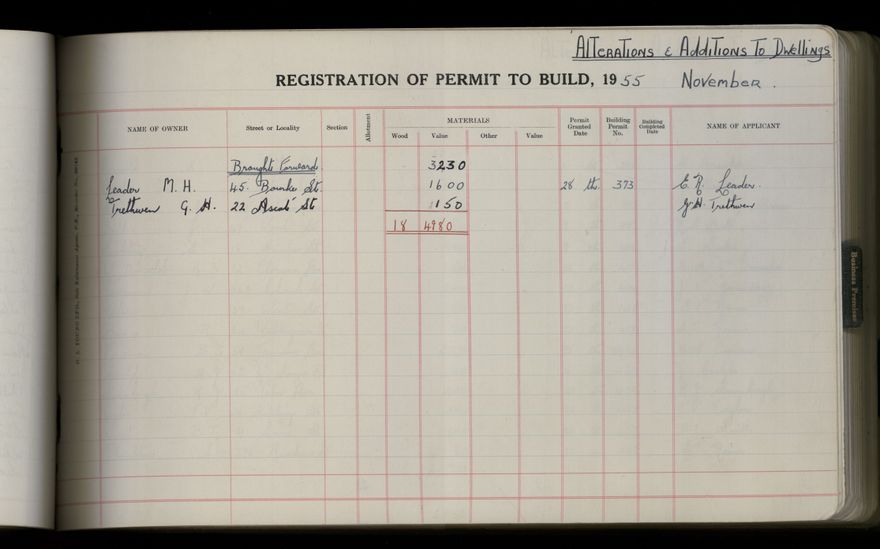 Alterations & Additions To Dwellings
REGISTRATION OF PERMIT TO BUILD, 1955 November.
NAME OF OWNER Street or Locality Section Allotment MATERIALS Permit Granted Date Building Permit No. Building Completed Date NAME OF APPLICANT
Wood Value Other Value
Brought Forward 3230
Leader M. H. 45. Bourke St. 1600 28 th. 373 E. R. Leader.
Trethwen G. H. 22 Ascot St 150 G. H. Trethwen
18 4980
Business Premises